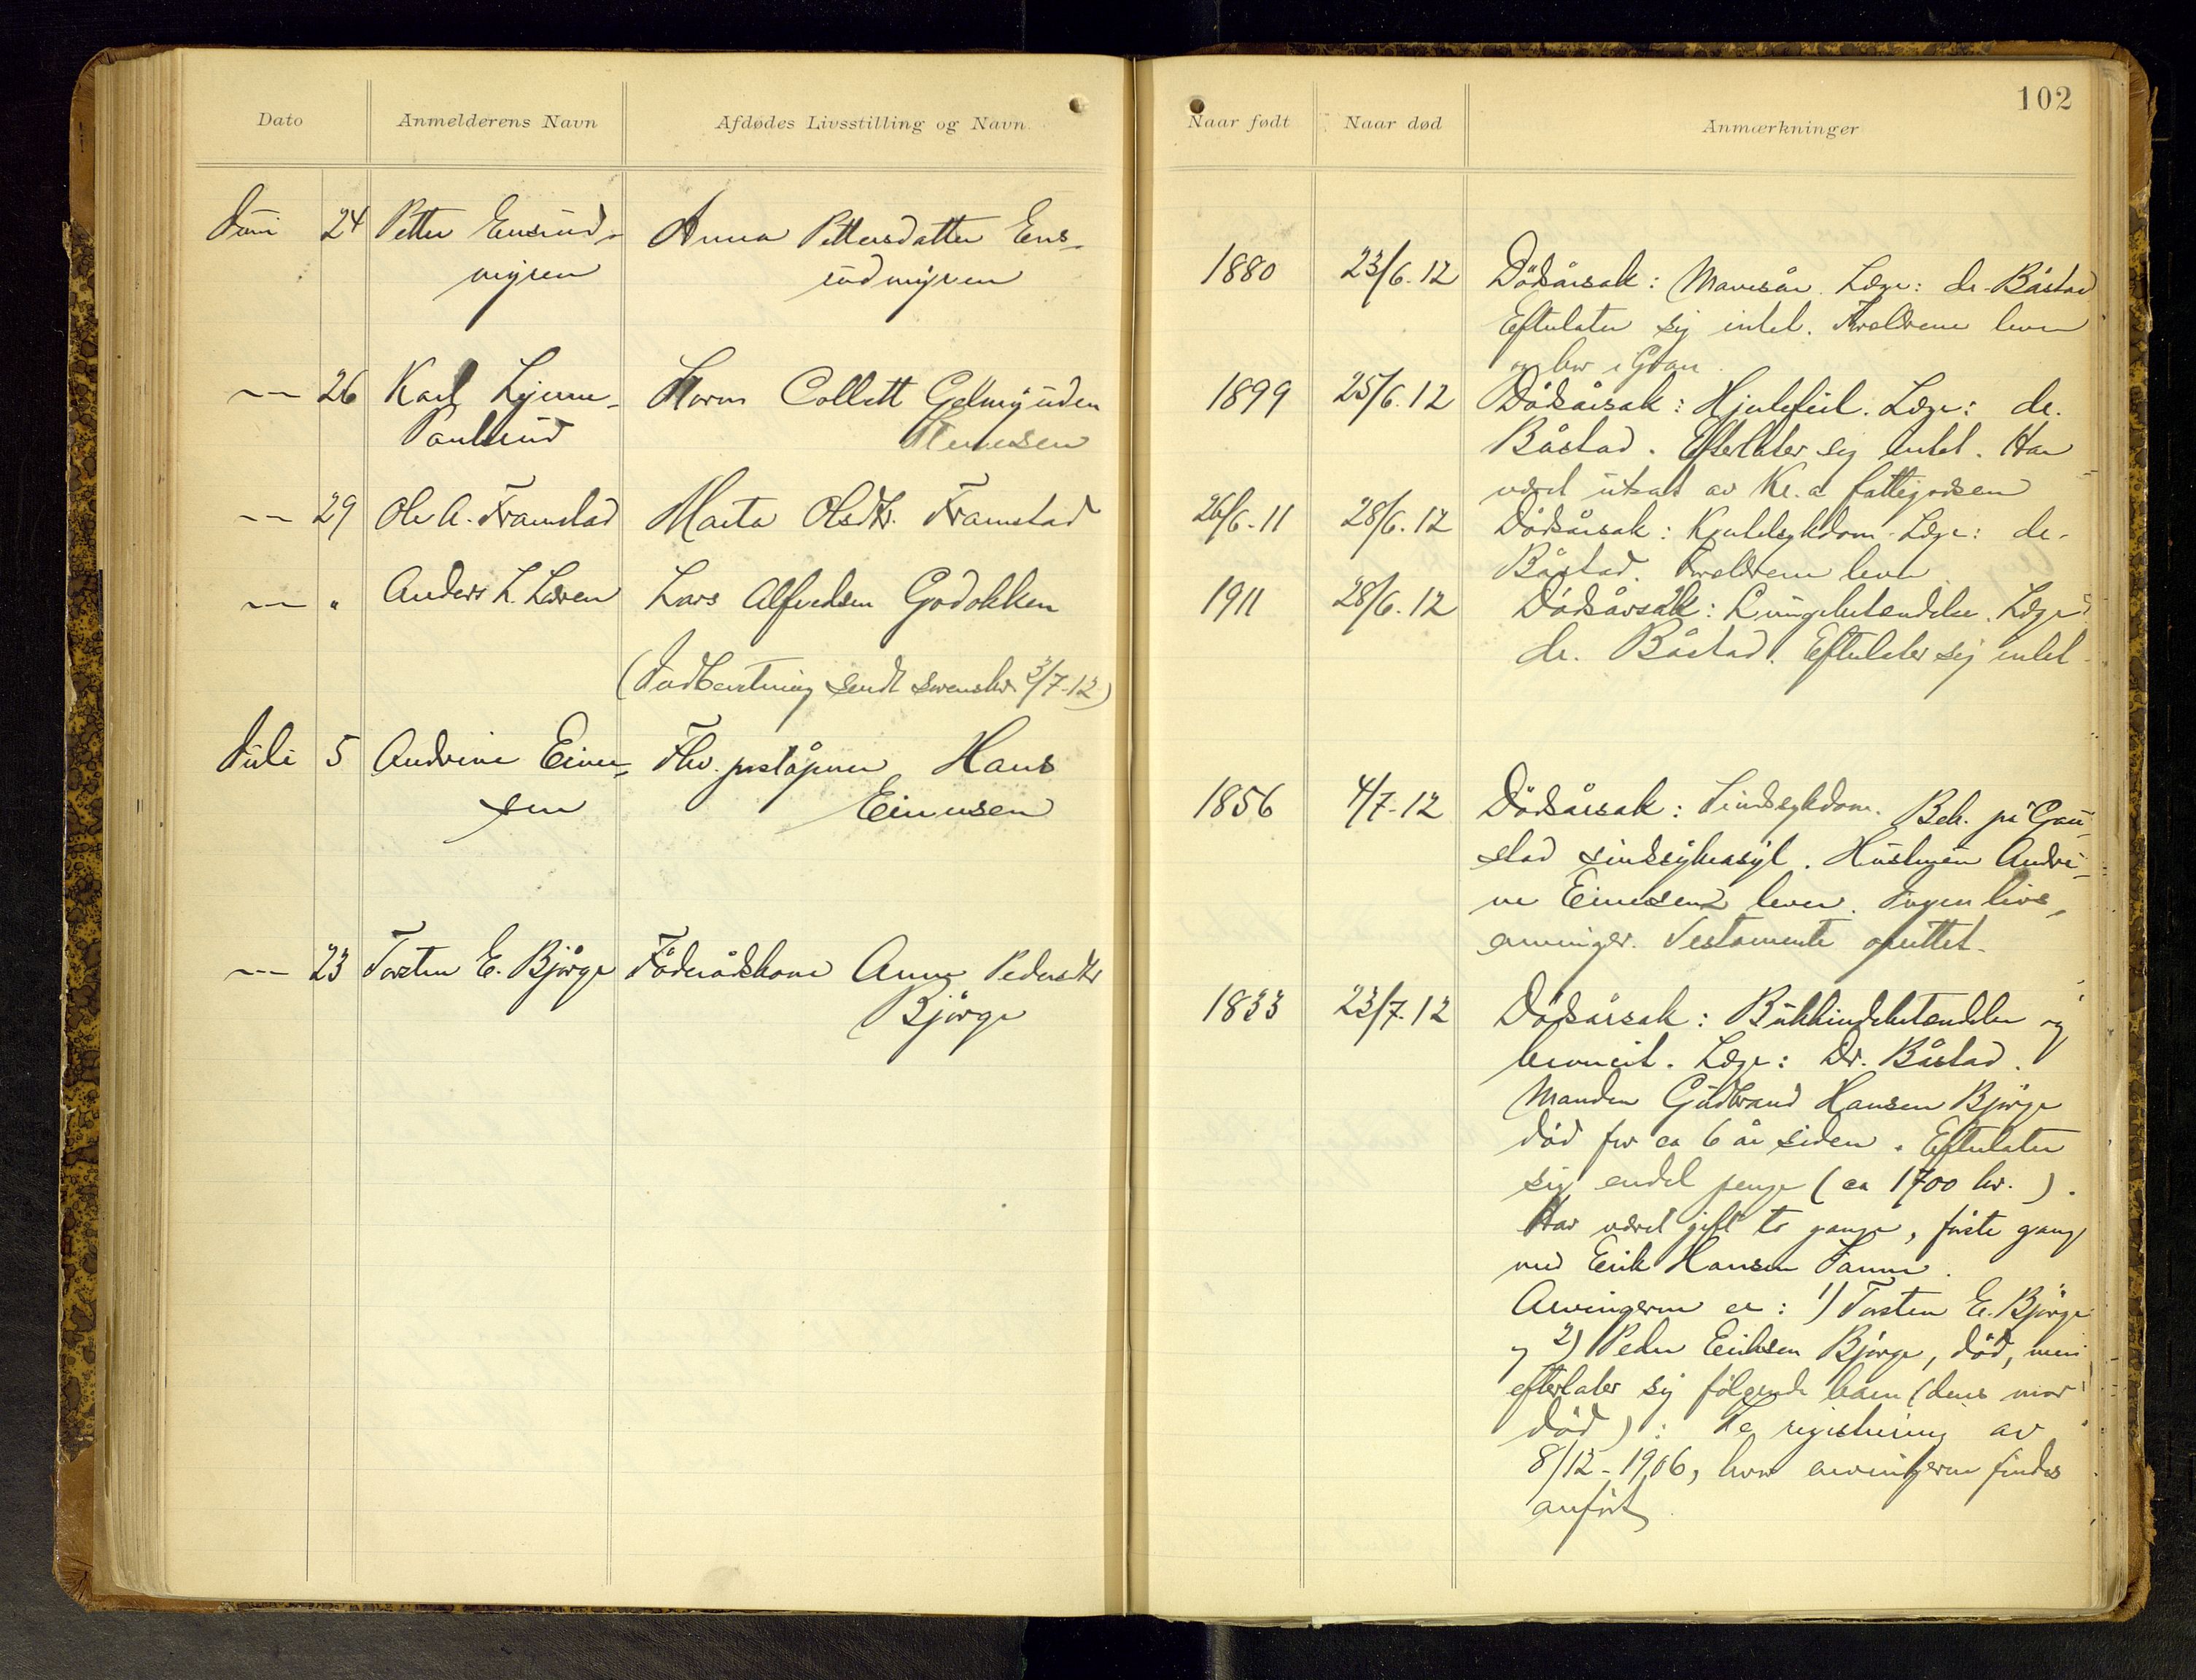 102
Dato
Anmelderens Navn
Afdødes Livsstilling og Navn
Naar født
Naar død
Anmærkninger
Juni 24 Petter Ensrud-
myren
Anna Pettersdatter Ens-
rudmyren
1880 23/6.12 Dödsårsak: Mavesår. Læge: dr. Båstad
Efterlater sig intet. Forældrene lever
og bor i Gran.
-"- 26 Karl
Paulsrud
Collett
1899 25/6.12 Dödsårsak: Hjertefeil. Læge: dr.
Båstad. Efterlater sig intet. Har
været utsat av Kr.a fattigvæsen
-"- 29 Ole A. Framstad
Marta Olsdtr. Framstad
26/6-11 28/6.12 Dödsårsak: Læge: dr.
Båstad. Forældrene lever
-"- " Anders L. Læren
Lars Alfredsen Godokken
1911 28/6.12 Dödsårsak: Lungebetændelse. Læge:
dr. Båstad. Efterlater sig intet.
(Indberetning sendt 3/7-12)
Juli 5 Andrine Einu-
sen
Fhv. poståpner Hans
Einusen
1856 4/7-12 Dödsårsak: Sindssykdom. Beh. på Gau-
stad sindsykeasyl. Hustruen Andri-
ne Einusen lever. Ingen livs-
arvinger. Testamente oprettet.
-"- 23 Torsten E. Bjørge
Föderådskone Anne Pedersdtr
Bjørge
1833 23/7.12 Dödsårsak: Bukhindebetændelse og
Læge: Dr. Båstad.
Manden Gudbrand Hansen Bjørge
död for ca 6 år siden. Efterlater
sig endel penge (ca 1700 kr.).
Har været gift to gange, förste gang
med Erik Hansen
Arvingerne er: 1) Torsten E. Bjørge
og 2) Peder Eriksen Bjørge, död, men
efterlater sig följende barn (deres mor
död): registrering av
8/12-1906, hvor arvingerne findes
anfört